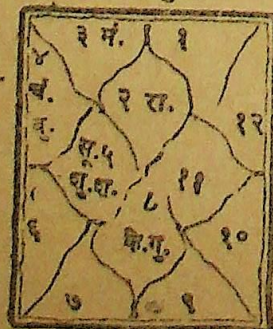 ३ मं. १
४
चं.
बु.
२ रा.
१२
सू. ५
शु. श.
११
८
६
के. गु.
१०
७
९